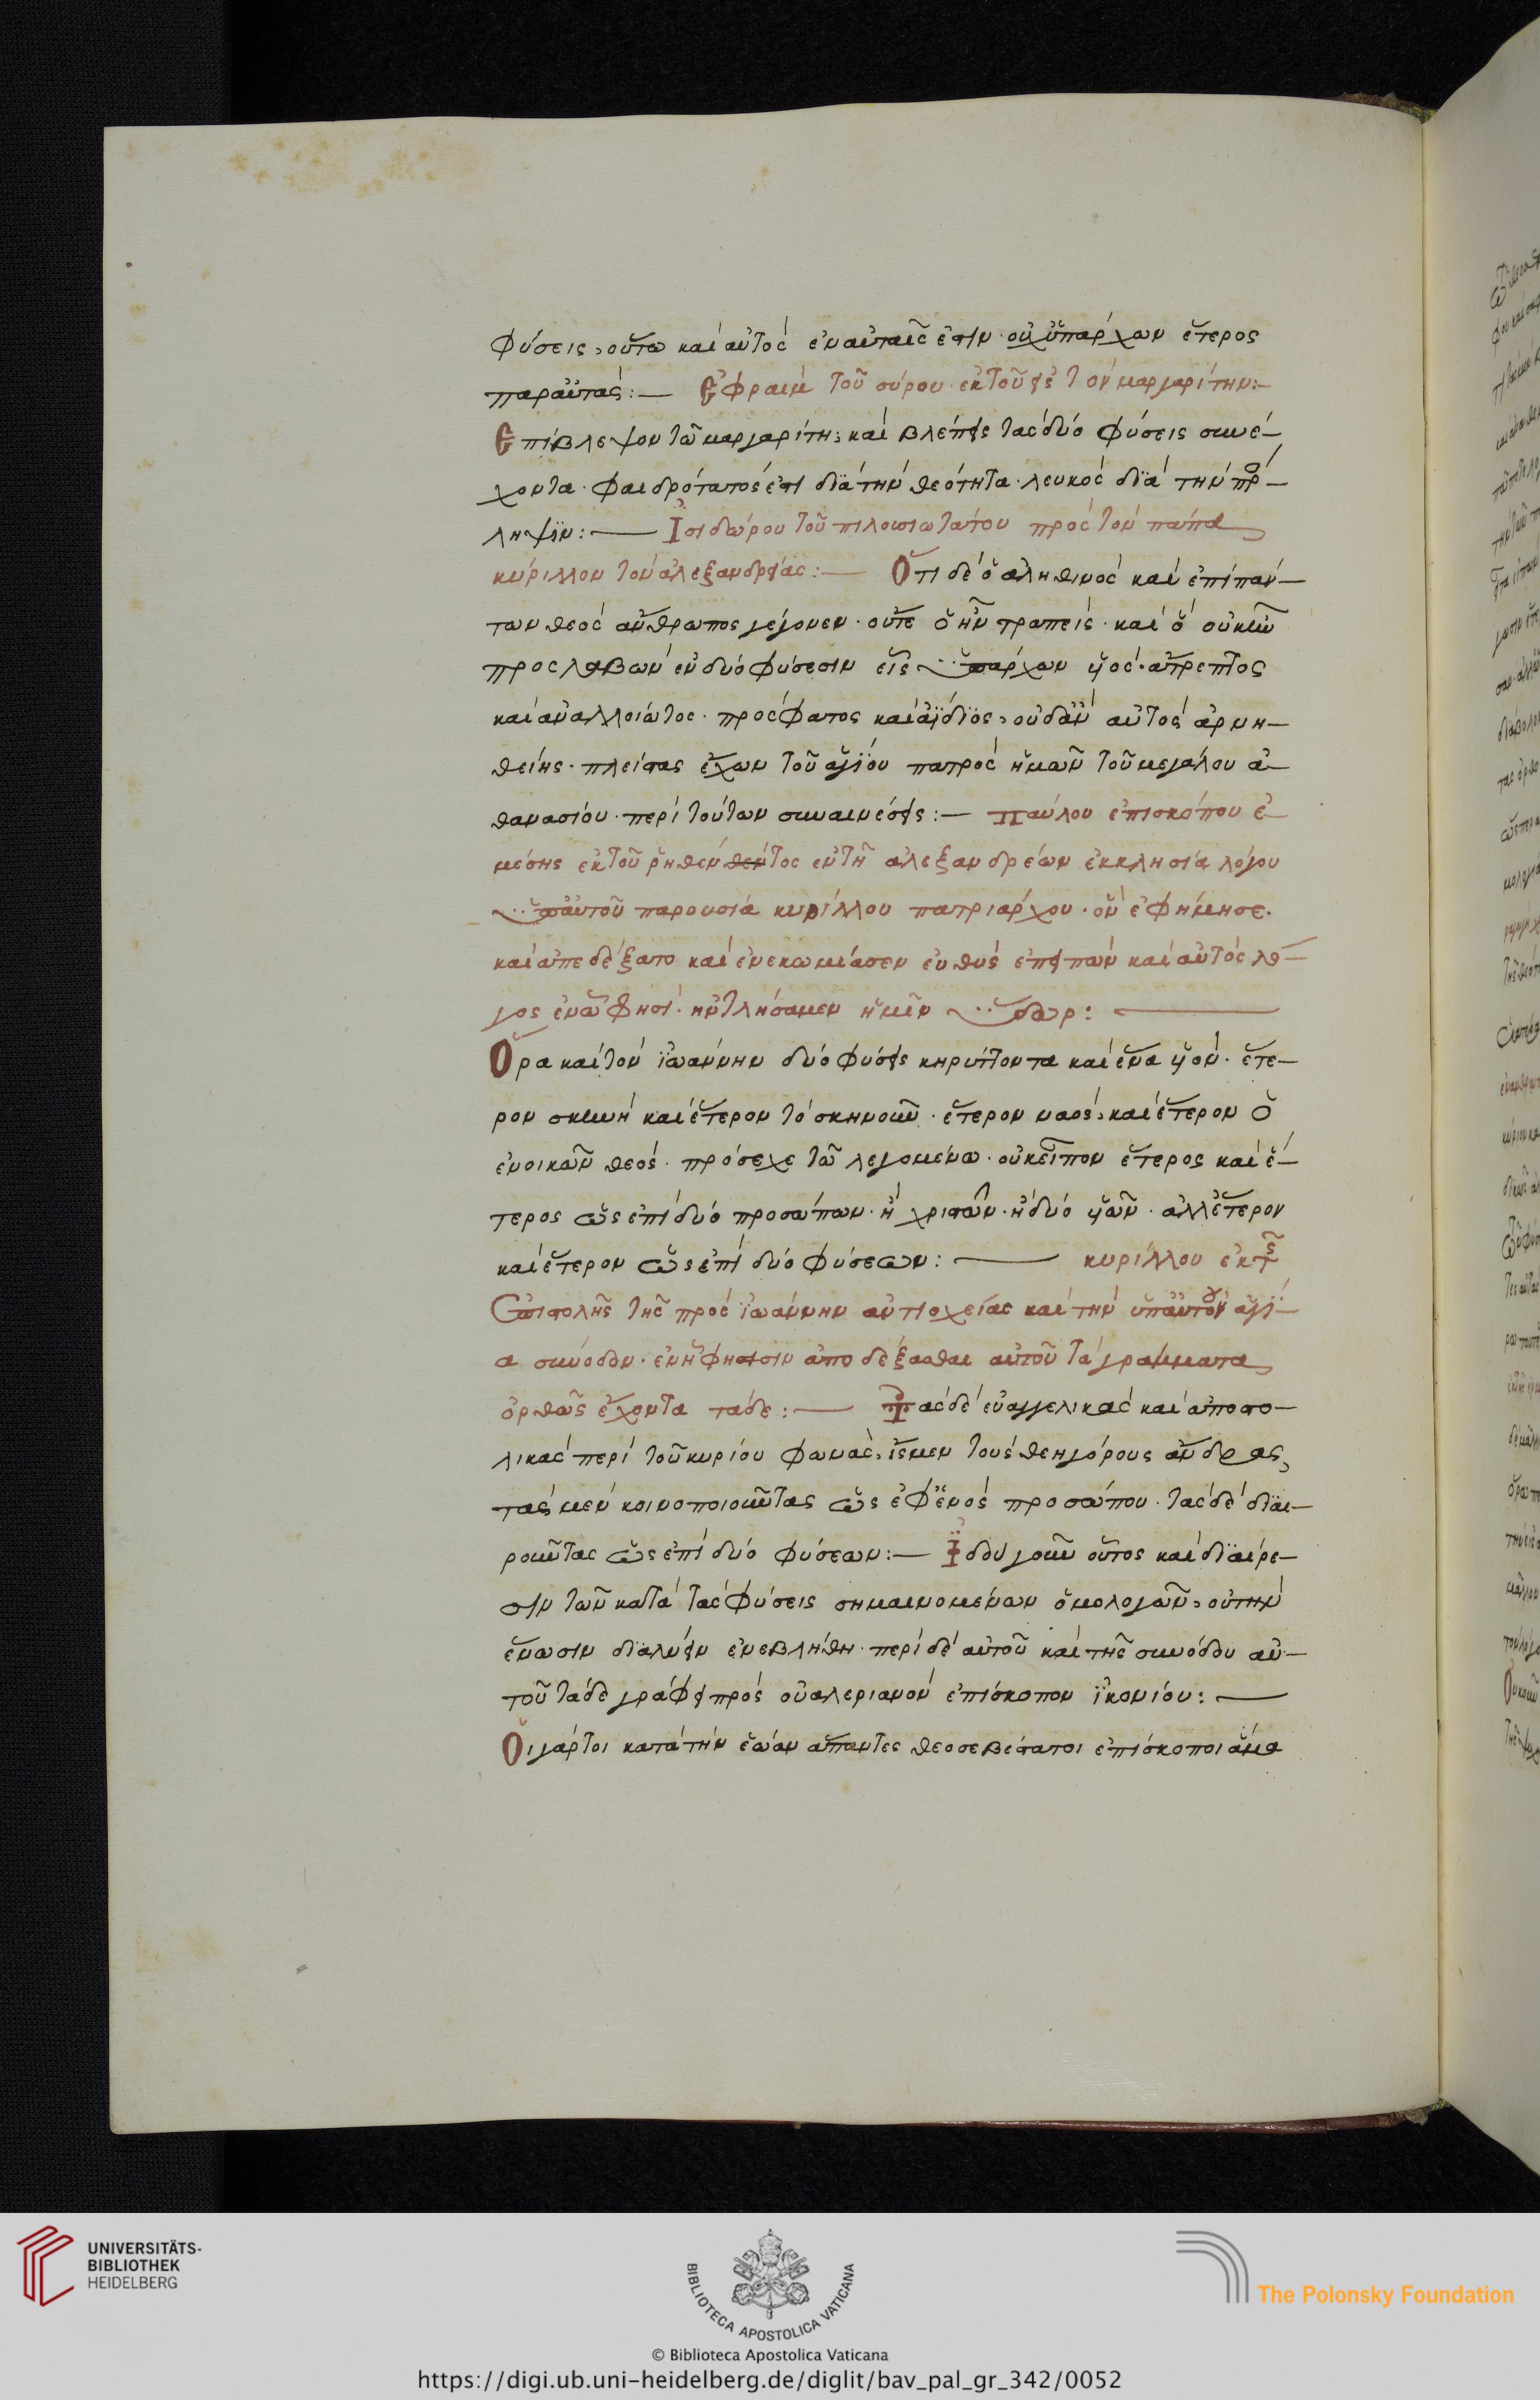 φύσεις, οὕτω καὶ αὐτὸς ἐν αὐταῖς ἐστιν· οὐχ ὑπάρχων ἕτερος
παρ αὐτάς:— Ἐφραὶμ τοῦ σύρου ἐκ τοῦ εἰς τὸν μαργαρίτην:—
Ἐπίβλεψον τῶ μαργαρίτη· καὶ βλέπεις τὰς δύο φύσεις συνέ—
χοντα· φαιδρότατός ἐστι διὰ τὴν θεότητα· λευκὸς διὰ τὴν πρό—
ληψϊν:— Ἰσιδώρου τοῦ πιλουσιωτάτου πρὸς τὸν πάπα
κύριλλον τὸν ἀλεξανδρείας:— Ὅτι δὲ ὁ ἀληθινὸς καὶ ἐπὶ πάν—
των θεὸς ἄνθρωπος γέγονεν· οὔτε ὃ ἦν τραπεὶς· καὶ ὃ οὐκ ἦν
προςλαβὼν ἐν δυὸ φύσεσιν εἷς ὑπάρχων υἱός· ἄτρεπτος
καὶ ἀναλλοίωτος· πρόσφατος καὶ ἀΐδϊος, οὐδ ἂν αὐτὸς ἀρνη—
θείης· πλείστας ἔχων τοῦ ἁγίου πατρὸς ἡμῶν τοῦ μεγάλου ἀ—
θανασίου· περὶ τούτων συναινέσεις:— Παύλου ἐπισκόπου ἐ—
μέσης ἐκ τοῦ ῥηθένθέντος ἐν τῆ ἀλεξανδρέων ἐκκλησία λόγου
ὑπ αὐτοῦ παρουσία κυρίλλου πατριάρχου· ὃν ἐφήμησε·
καὶ ἀπεδέξατο καὶ ἐνεκωμίασεν εὐθὺς ἐπειπὼν καὶ αὐτὸς λό—
γος ἐν ὧ φησί· ἠντλήσαμεν ἡμῖν ὕδωρ:
Ὅρα καὶ τὸν ἰωάννην δύο φύσεις κηρύττοντα καὶ ἕνα υἱόν· ἕτε—
ρον σκηνὴ καὶ ἕτερον τὸ σκηνοῦν· ἕτερον ναός, καὶ ἕτερον ὁ
ἐνοικῶν θεός· πρόσεχε τῶ λεγομένω· οὐκ εἶπον ἕτερος καὶ ἕ—
τερος ὡς ἐπὶ δύο προσώπων· ἢ χριστῶν· ἢ δύο υἱῶν· ἀλλ ἕτερον
καὶ ἕτερον ὡς ἐπὶ δύο φύσεων:— κυρίλλου ἐκ τῆς
ἐπιστολῆς τῆς πρὸς ἰωάννην ἀντιοχείας καὶ τὴν ὑπ αὐτὸν ἁγί—
α σύνοδον· ἐν ἧ φησιν ἀποδέξασθαι αὐτοῦ τὰ γράμματα
ὀρθῶς ἔχοντα τάδε:— Τὰς δὲ εὐαγγελικὰς καὶ ἀποστο—
λικὰς περὶ τοῦ κυρίου φωνὰς, ἴσμεν τοὺς θεηγόρους ἄνδρας,
τὰς μὲν κοινοποιοῦντας ὡς ἐφ ἑνὸς προσώπου· τὰς δὲ διαι—
ροῦντας ὡς ἐπὶ δύο φύσεων:— Ἰδοὺ γοῦν οὗτος καὶ διαίρε—
σιν τῶν κατὰ τὰς φύσεις σημαινομένων ὁμολογῶν, οὐ τὴν
ἕνωσιν διαλύειν ἐνεβλήθη· περὶ δὲ αὐτοῦ καὶ τῆς συνόδου αὐ—
τοῦ τάδε γράφει πρὸς οὐαλεριανὸν ἐπίσκοπον ἰκονίου:—
Οἱ γάρ τοι κατὰ τὴν ἑῴαν ἅπαντες θεοσεβέστατοι ἐπίσκοποι ἅμα
UNIVERSITÄTS-
BIBLIOTHEK
HEIDELBERG
BIBLIOTECA APOSTOLICA VATICANA
The Polonsky Foundation
© Biblioteca Apostolica Vaticana
https://digi.ub.uni-heidelberg.de/diglit/bav_pal_gr_342/0052